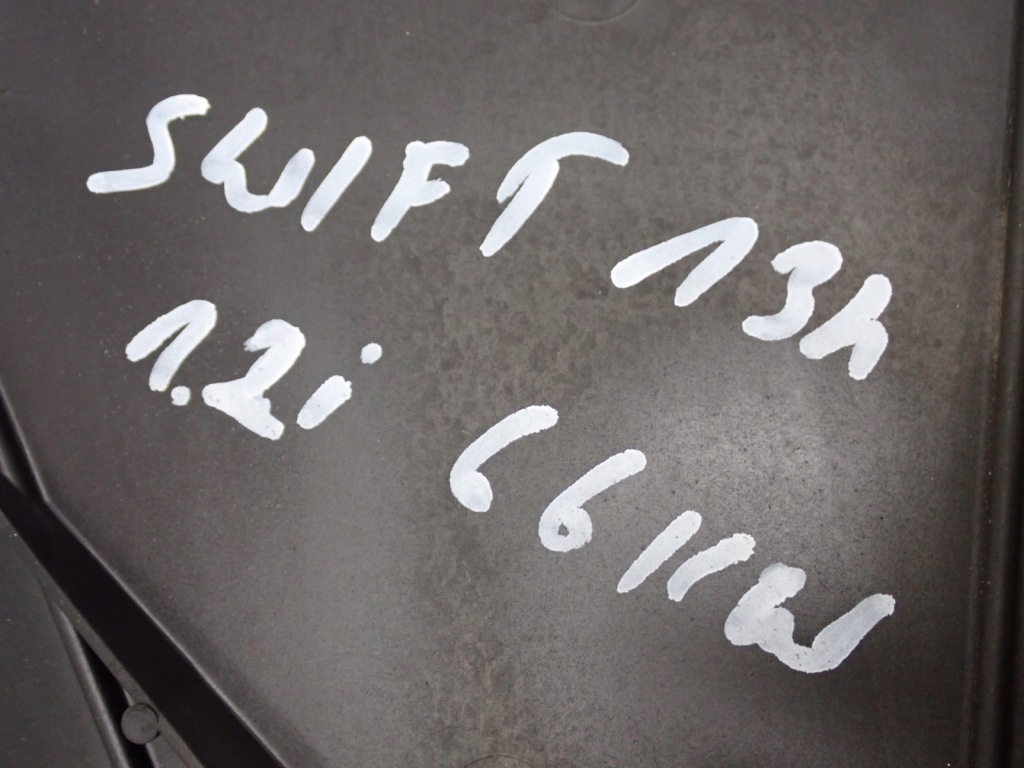 SWIFT 13r
1.2i 66KW